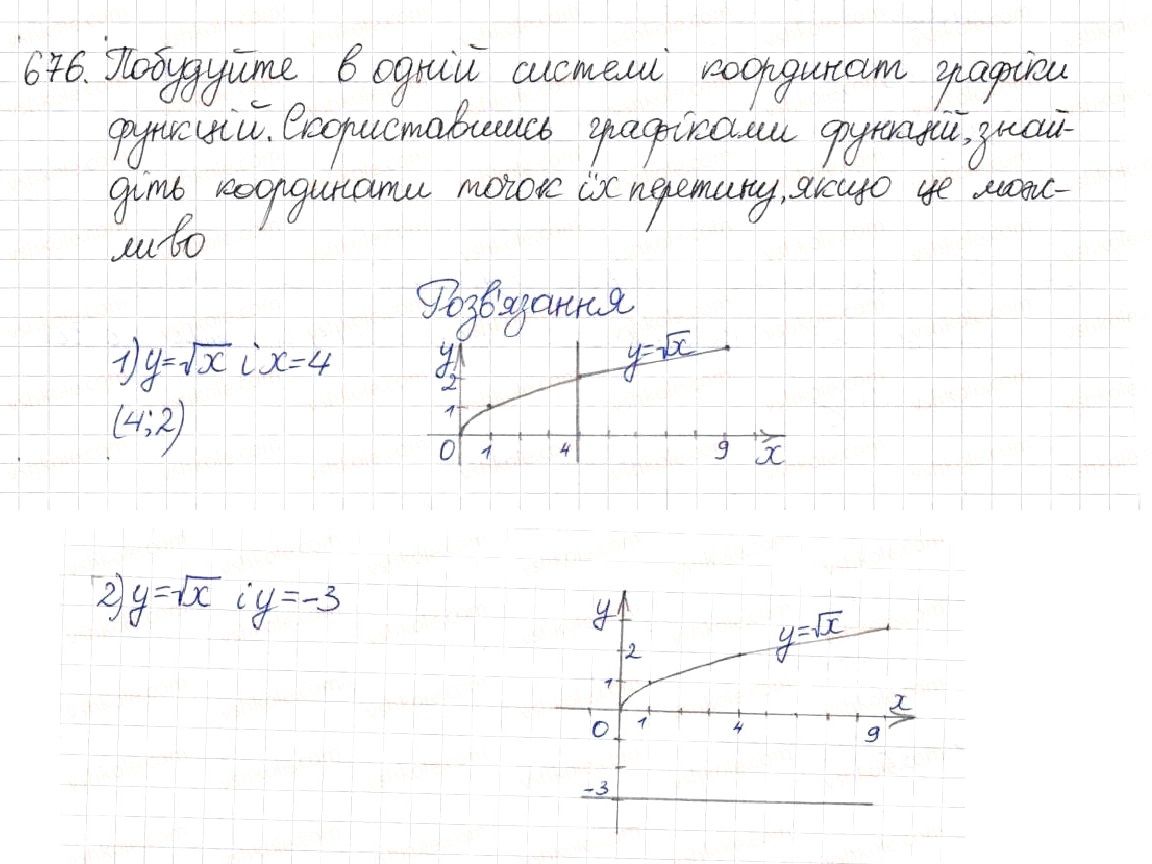 676. Побудуйте в одній системі координат графіки
функцій. Скориставшись графіками функцій, знай-
діть координати точок їх перетину, якщо це мож-
ливо
Розв'язання
1) y=√x і x=4
(4;2)
y
2
1
0 1 4 9 x
y=√x
2) y=√x і y=-3
y
2
1
0 1 4 9 x
y=√x
-3